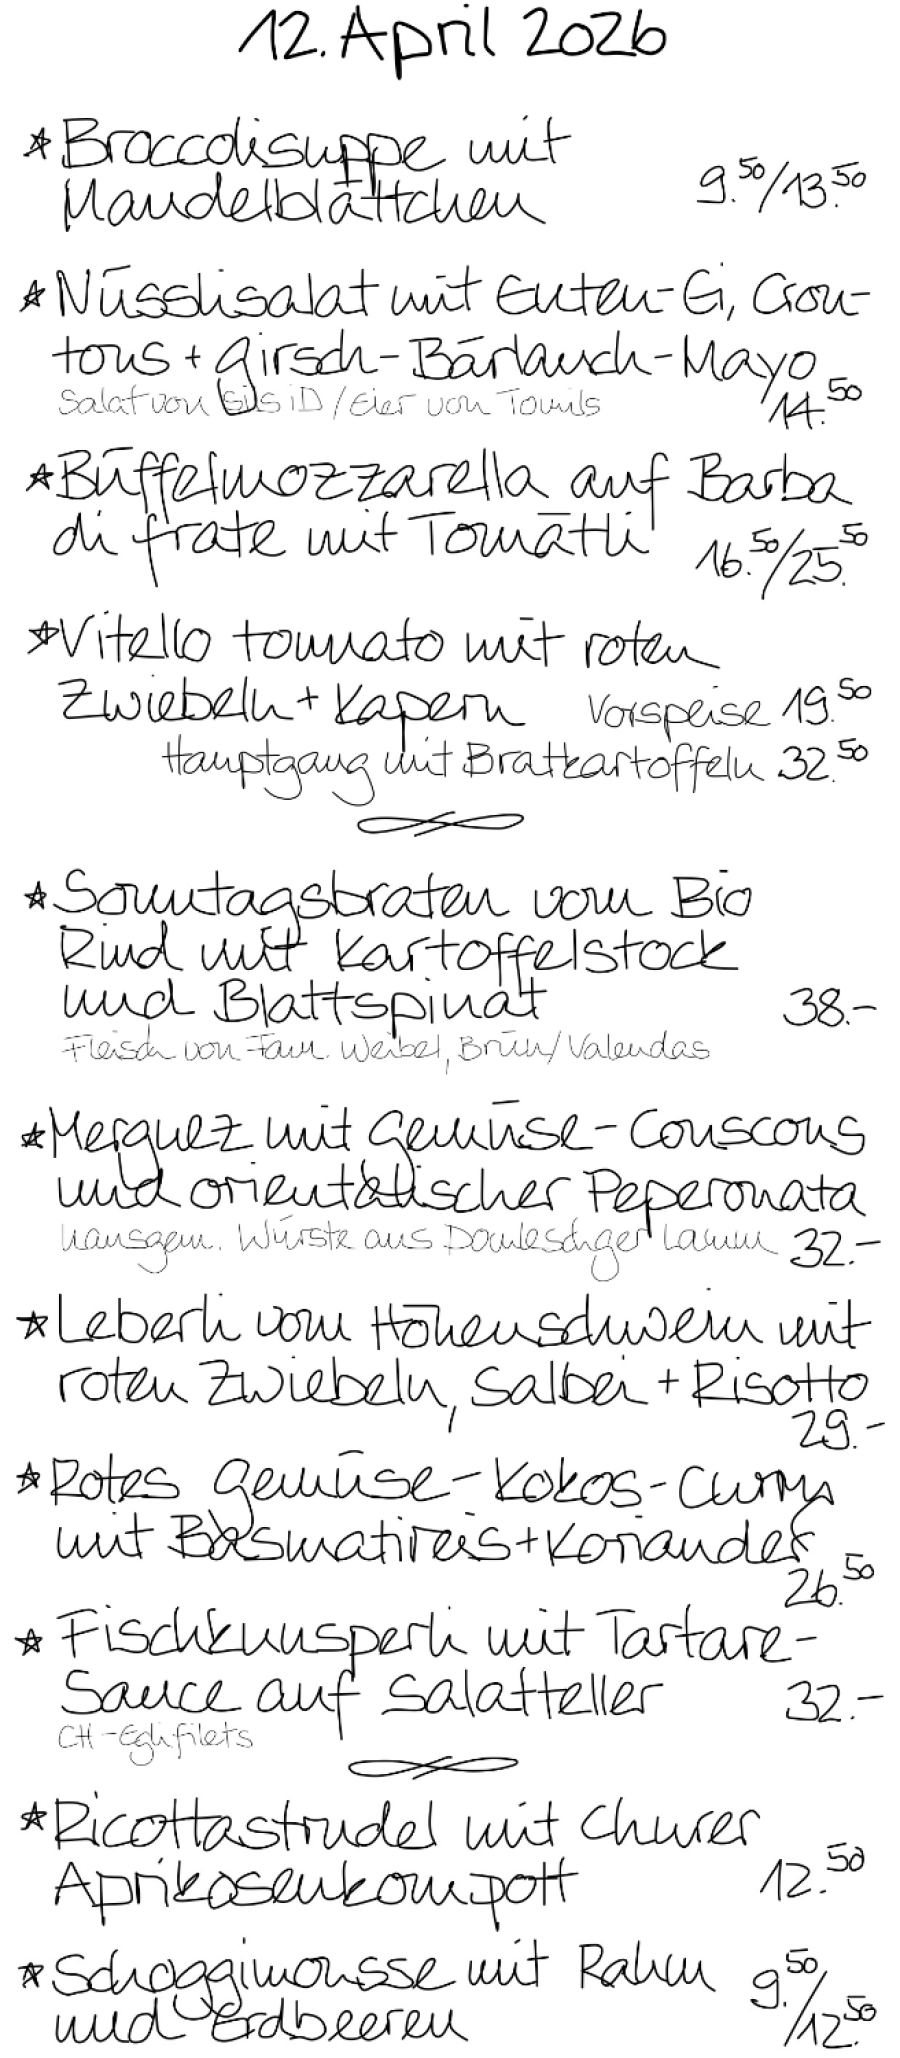 12. April 2026
* Broccolisuppe mit
Mandelblättchen 9.50/13.50
* Nüsslisalat mit Enten-Ei, Crou-
tons + Girsch-Bärlauch-Mayo
Salat von Sils iD / Eier von Tomils 14.50
* Büffelmozzarella auf Barba
di frate mit Tomätli 16.50/25.50
* Vitello tonnato mit roten
Zwiebeln + Kapern Vorspeise 19.50
Hauptgang mit Bratkartoffeln 32.50
* Sonntagsbraten vom Bio
Rind mit Kartoffelstock
und Blattspinat 38.-
Fleisch von Fam. Weibel, Brün/Valendas
* Merguez mit Gemüse-Couscous
und orientalischer Peperonata
hausgem. Würste aus Domleschger Lamm 32.-
* Leberli vom Höhenschwein mit
roten Zwiebeln, Salbei + Risotto
29.-
* Rotes Gemüse-Kokos-Curry
mit Basmatireis + Koriander
26.50
* Fischknusperli mit Tartare-
Sauce auf Salatteller 32.-
CH-Eglifilets
* Ricottastrudel mit Churer
Aprikosenkompott 12.50
* Schoggimousse mit Rahm
und Erdbeeren 9.50/12.50